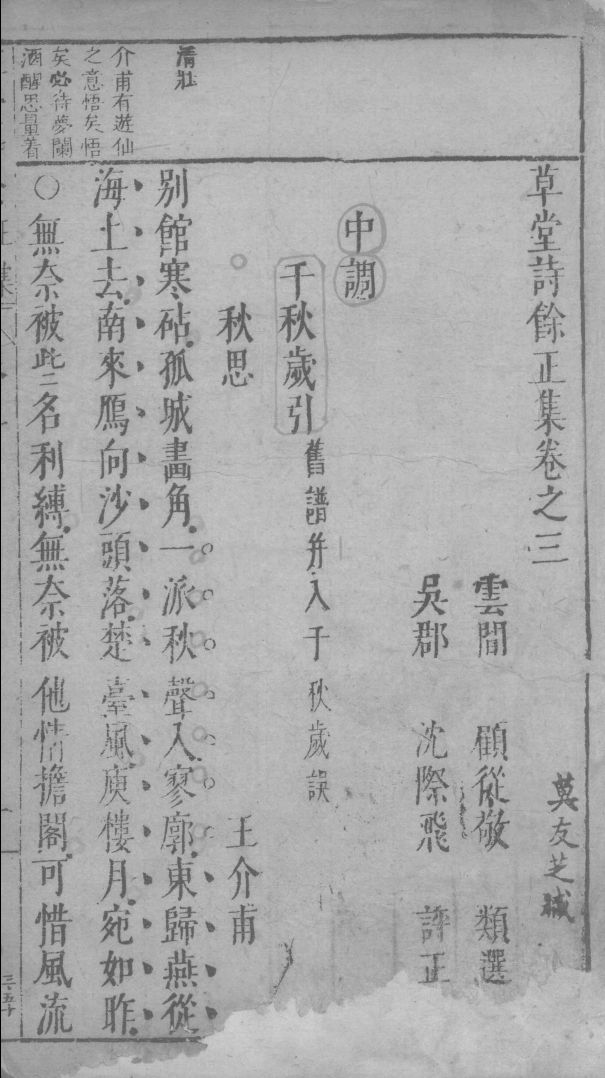 草堂詩餘正集卷之三
莫友芝臧
雲間 顧從敬 類選
吳郡 沈際飛 評正
中調
千秋歲引 舊譜并入千秋歲誤
秋思 王介甫
别館寒砧孤城畫角一派秋聲入寥廓東歸燕從
海上去南來鴈向沙頭落楚臺風庾樓月宛如昨
○無奈被此二名利縛無奈被他情擔閣可惜風流
清壯
介甫有遊仙
之意悟矣悟
矣必待夢闌
酒醒思量着